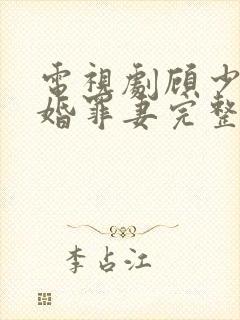 電視劇顾少
婚罪妻完整
李占江